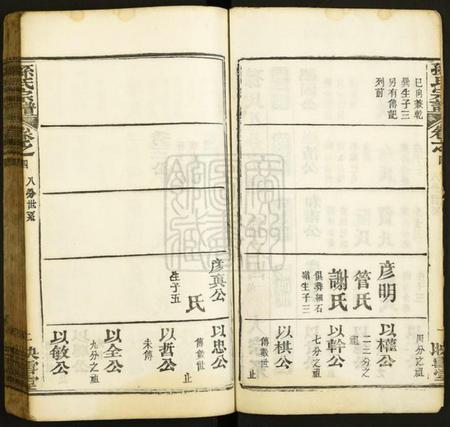 孫氏宗譜
卷之四
巳向兼乾
巽生子三
另有傳記
列前
彦明
管氏
謝氏
俱葬細石
嶺生子三
四分之祖
以權公
一二三分之
祖
以幹公
七分之祖
以棋公
傳數世
止
彦真公
氏
生子五
以忠公
傳數世
止
以哲公
未傳
以全公
九分之祖
以敏公
孫氏宗譜
卷之四
八分世系
映雪堂